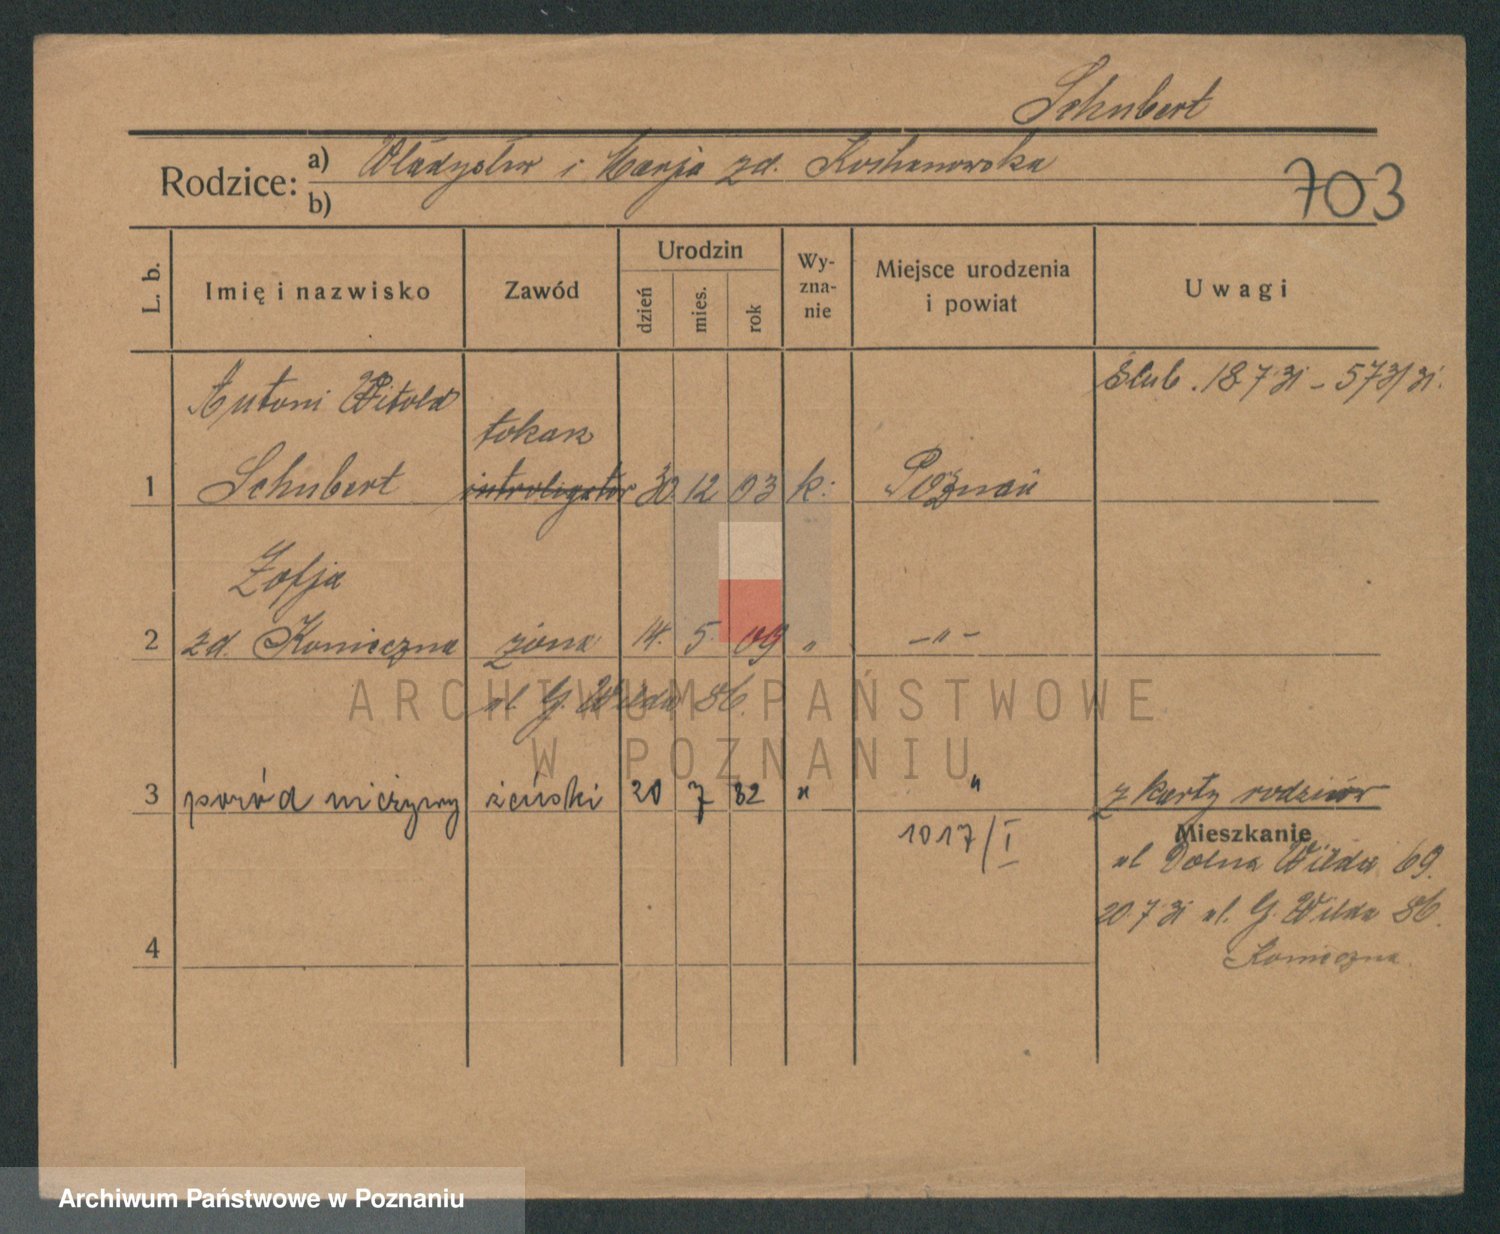 Schubert
Rodzice: a) Władysław i Marja zd. Kochanowska
b)
703
L. b.
Imię i nazwisko
Zawód
Urodzin
dzień
mies.
rok
Wy-
zna-
nie
Miejsce urodzenia
i powiat
Uwagi
Ślub. 18 7 31 – 573/31.
Antoni Witold
tokarz
1 Schubert introligator 30 12 03 k: Poznań
Zofja
2 zd. Konieczna żona 14. 5. 09 „ – „ –
ul G. Wilda 86.
ARCHIWUM PAŃSTWOWE
W POZNANIU
3 poród nieżywy żeński 20 7 32 " " z karty rodziców
1017/I
Mieszkanie
ul Dolna Wilda 69.
20.7.31 ul. G. Wilda 86.
Konieczna.
4
Archiwum Państwowe w Poznaniu